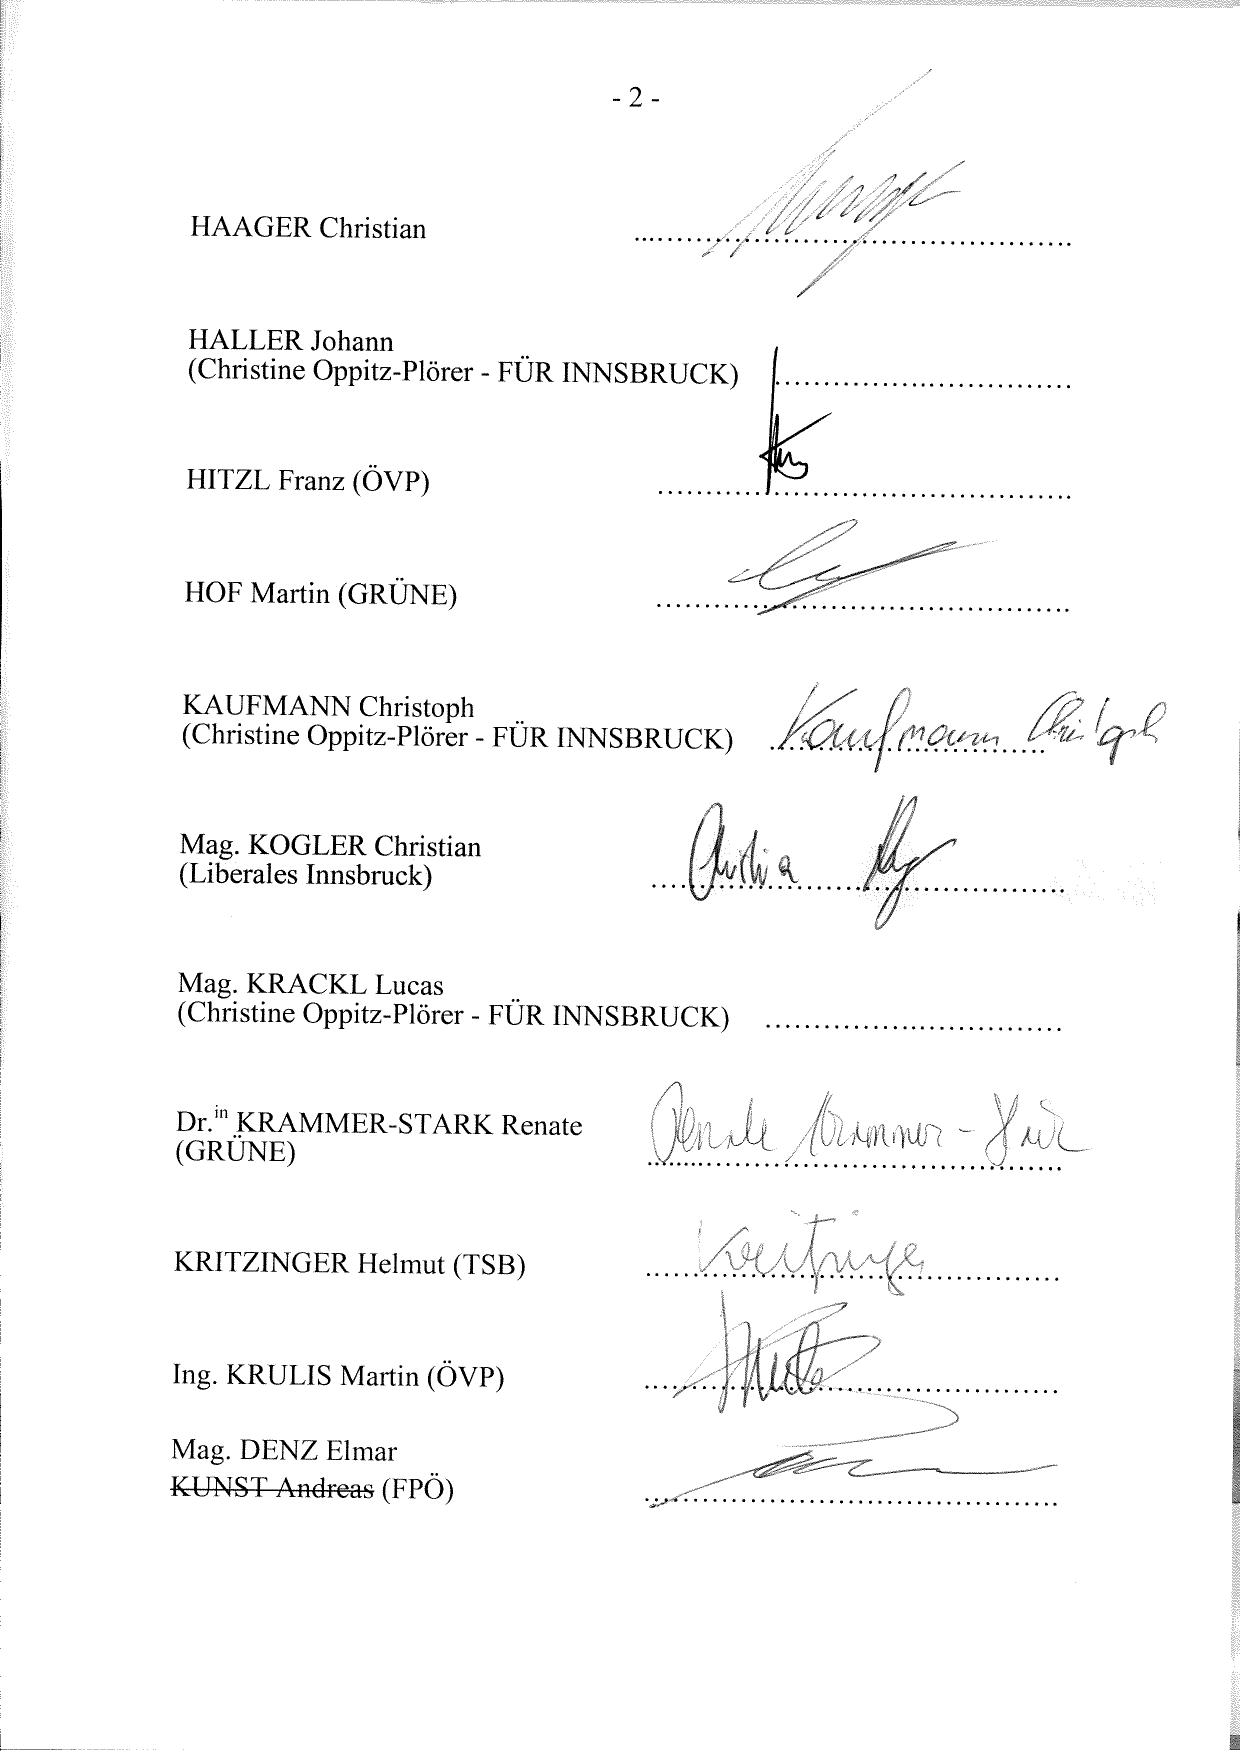 - 2 -
HAAGER Christian ........................................
HALLER Johann
(Christine Oppitz-Plörer - FÜR INNSBRUCK) ..............................
HITZL Franz (ÖVP) ........................................
HOF Martin (GRÜNE) ........................................
KAUFMANN Christoph
(Christine Oppitz-Plörer - FÜR INNSBRUCK) Kaufmann Christoph
Mag. KOGLER Christian
(Liberales Innsbruck) ........................................
Mag. KRACKL Lucas
(Christine Oppitz-Plörer - FÜR INNSBRUCK) ..............................
Dr.in KRAMMER-STARK Renate
(GRÜNE) Renate Krammer-Stark
KRITZINGER Helmut (TSB) Kritzinger
Ing. KRULIS Martin (ÖVP) ........................................
Mag. DENZ Elmar
KUNST Andreas (FPÖ) ........................................